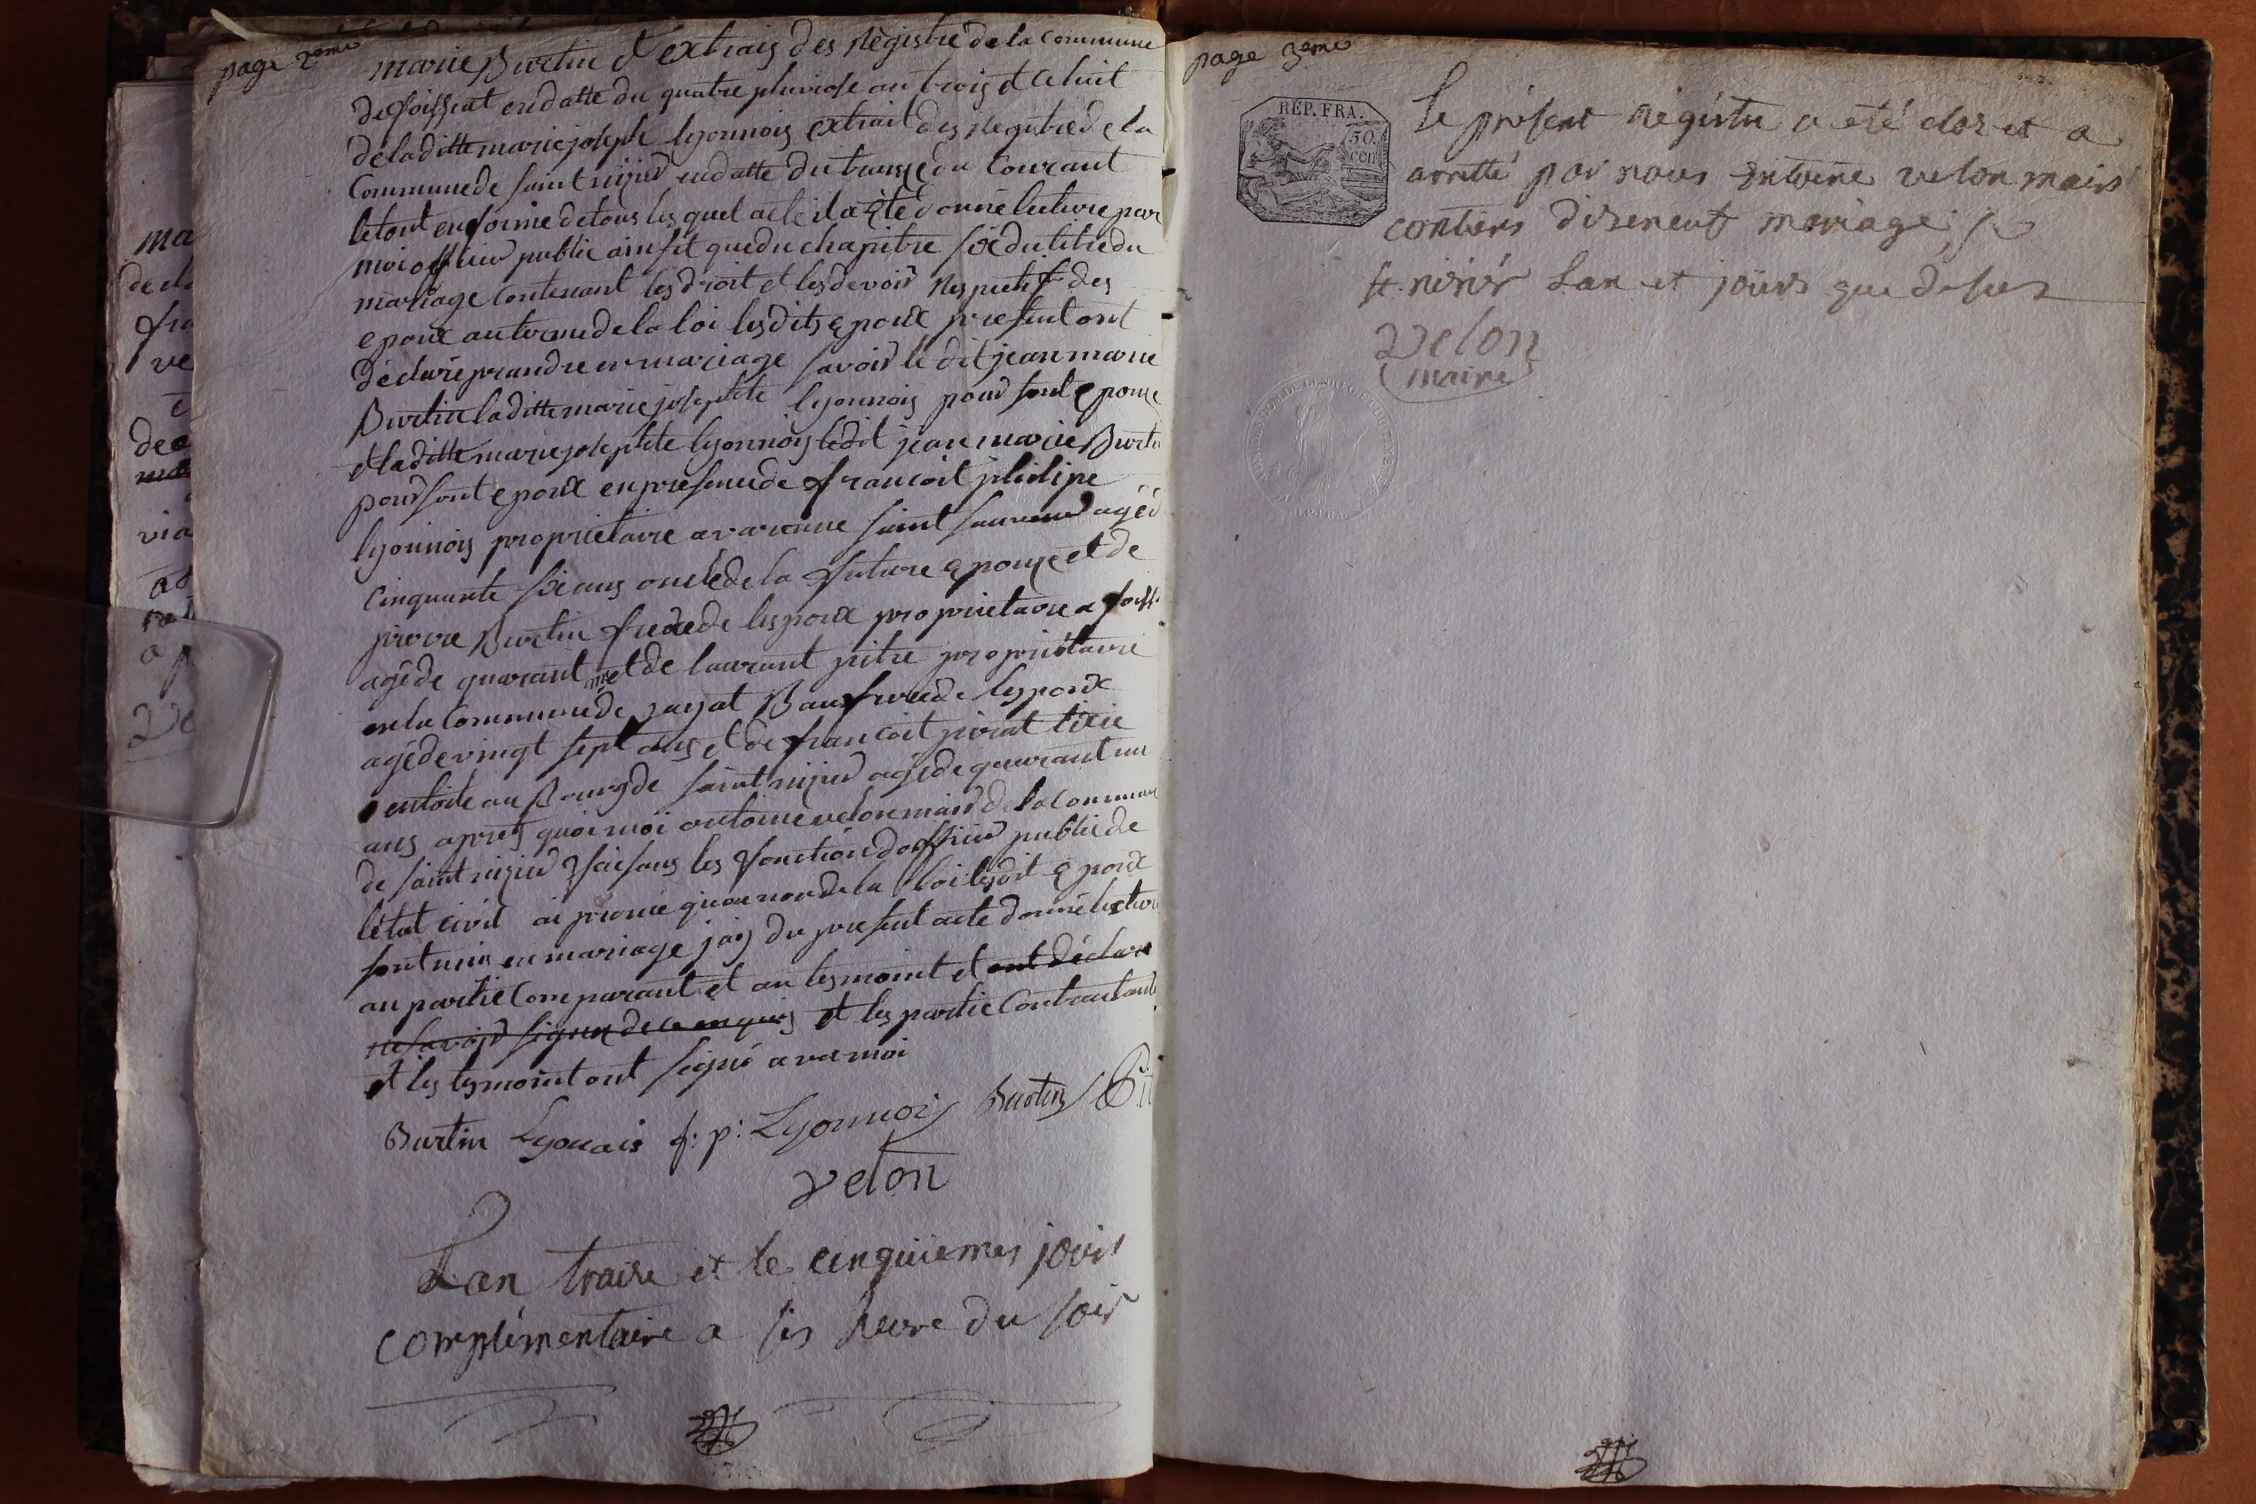 page 2eme
marie Burtin & extrais des régistre de la commune
de foissiat endatte du quatre pluviose an trois et celuit
de laditte marie joseph lyonnois extrait des registre de la
Commune de saint nizier endatte du du Courant
letout enforme detous les quel acte il a été donné lecture par
moi officier public ainsit quedu chapitre six dutitre du
mariage Contenant les droit et lesdevoir respectif des
epoux autermedelaloi lesdits epoux présent ont
déclaré prandre en mariage savoir le dit jean marie
Burtin laditte marie josephte lyonnois pour sont epouze
et laditte marie josephte lyonnois ledit jean marie Burtin
pour sont epoux en presencede francoit philipe
lyonnois proprietaire a varenne saint sauveur agéd
cinquante six ans onclede la future epouze et de
pierre Burtin frerede lespoux proprietaire a foissi
agéde quarant ans et de laurant pitre propriétaire
enla Commune de jayat Beaufrerede lespoux
agéde vingt sept ans et de francoit piviat tixie
entoile au Bourg de saint nizier agéde quarant un
ans aprets quoi moi antoine velon maire de la Commune
de saint nizier faisans les fonction dofficier public de
létat civil ai prononcé quaunom de la loi lesdit epoux
sont unis en mariage jaij du present acte donné lecture
au partie Comparant et au tesmoint et ont déclaré
ne savoir signer de ce enquis et les partie Contractante
et les tesmoint ont signé avemoi
Burtin Lyonais f: p: Lyonnois Burtin
velon
Lan traize et le cinquiemes jour
complémentaire a sis heure du soir
page 3eme
REP. FRA.
50.
cen
le présent régistre a eté clos et a
arretté par nous entoine velon maire
contiens dizeneuf mariage
st. nizier Lan et jours que desus
velon
maire